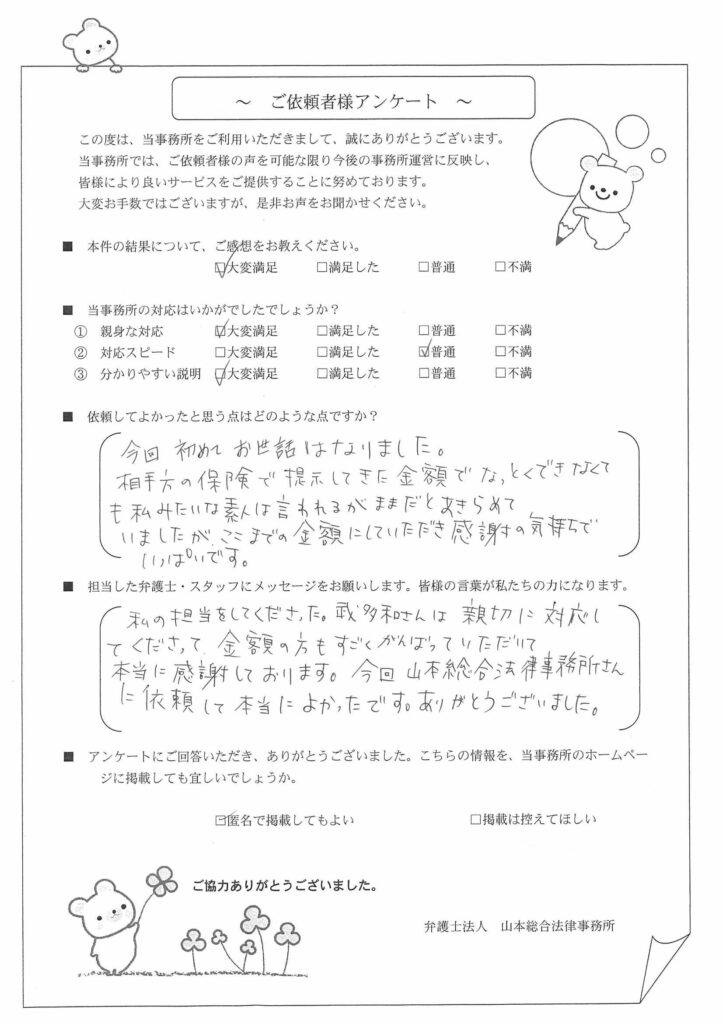 ～ ご依頼者様アンケート ～
この度は、当事務所をご利用いただきまして、誠にありがとうございます。
当事務所では、ご依頼者様の声を可能な限り今後の事務所運営に反映し、
皆様により良いサービスをご提供することに努めております。
大変お手数ではございますが、是非お声をお聞かせください。
■ 本件の結果について、ご感想をお教えください。
☑大変満足 □満足した □普通 □不満
■ 当事務所の対応はいかがでしたでしょうか？
① 親身な対応 ☑大変満足 □満足した □普通 □不満
② 対応スピード □大変満足 □満足した ☑普通 □不満
③ 分かりやすい説明 ☑大変満足 □満足した □普通 □不満
■ 依頼してよかったと思う点はどのような点ですか？
今回 初めて お世話はなりました。
相手方の保険で提示してきた金額でなっとくできなくて
も私みたいな素人は言われるがままだとあきらめて
いましたが、ここまでの金額にしていただき感謝の気持ちで
いっぱいです。
■ 担当した弁護士・スタッフにメッセージをお願いします。皆様の言葉が私たちの力になります。
私の担当をしてくださった。武多和さんは 親切に対応し
てくださって、金額の方もすごくがんばっていただいて
本当に感謝しております。今回 山本総合法律事務所さん
に依頼して本当によかったです。ありがとうございました。
■ アンケートにご回答いただき、ありがとうございました。こちらの情報を、当事務所のホームペー
ジに掲載しても宜しいでしょうか。
☑匿名で掲載してもよい □掲載は控えてほしい
ご協力ありがとうございました。
弁護士法人 山本総合法律事務所